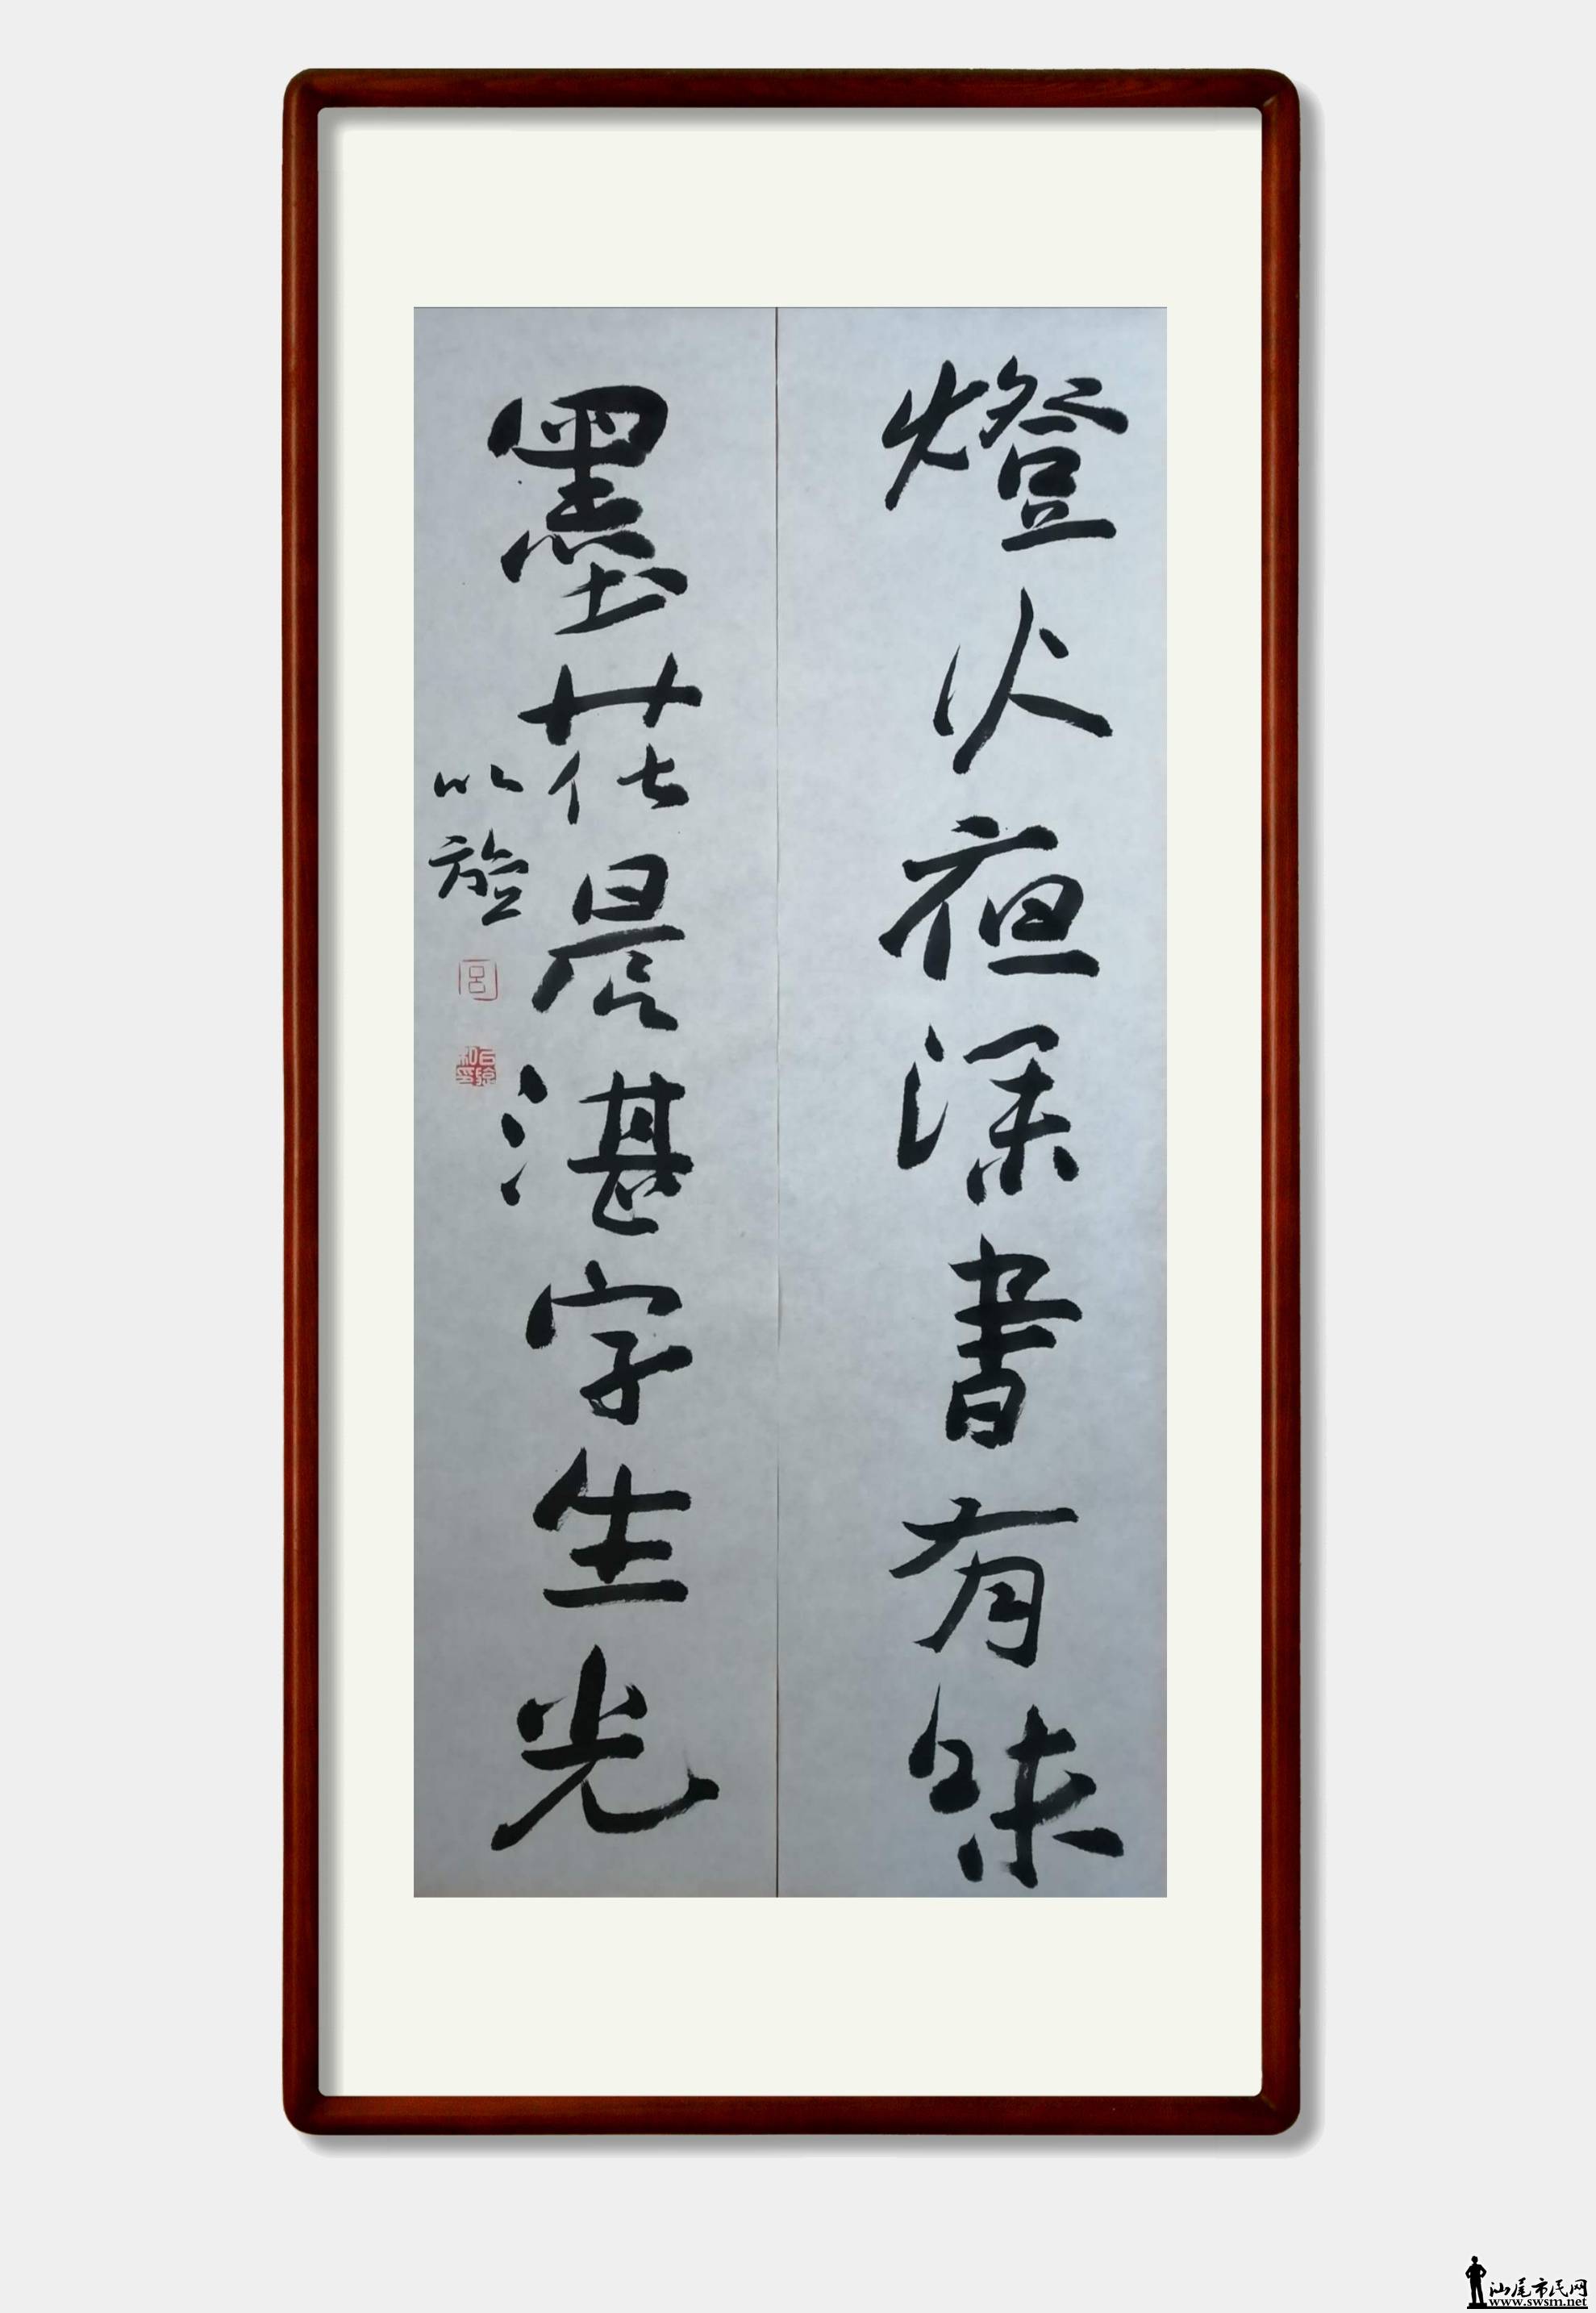 燈火夜深書有味
墨花晨湛字生光
以
呂
汕尾市民网
www.swsm.net